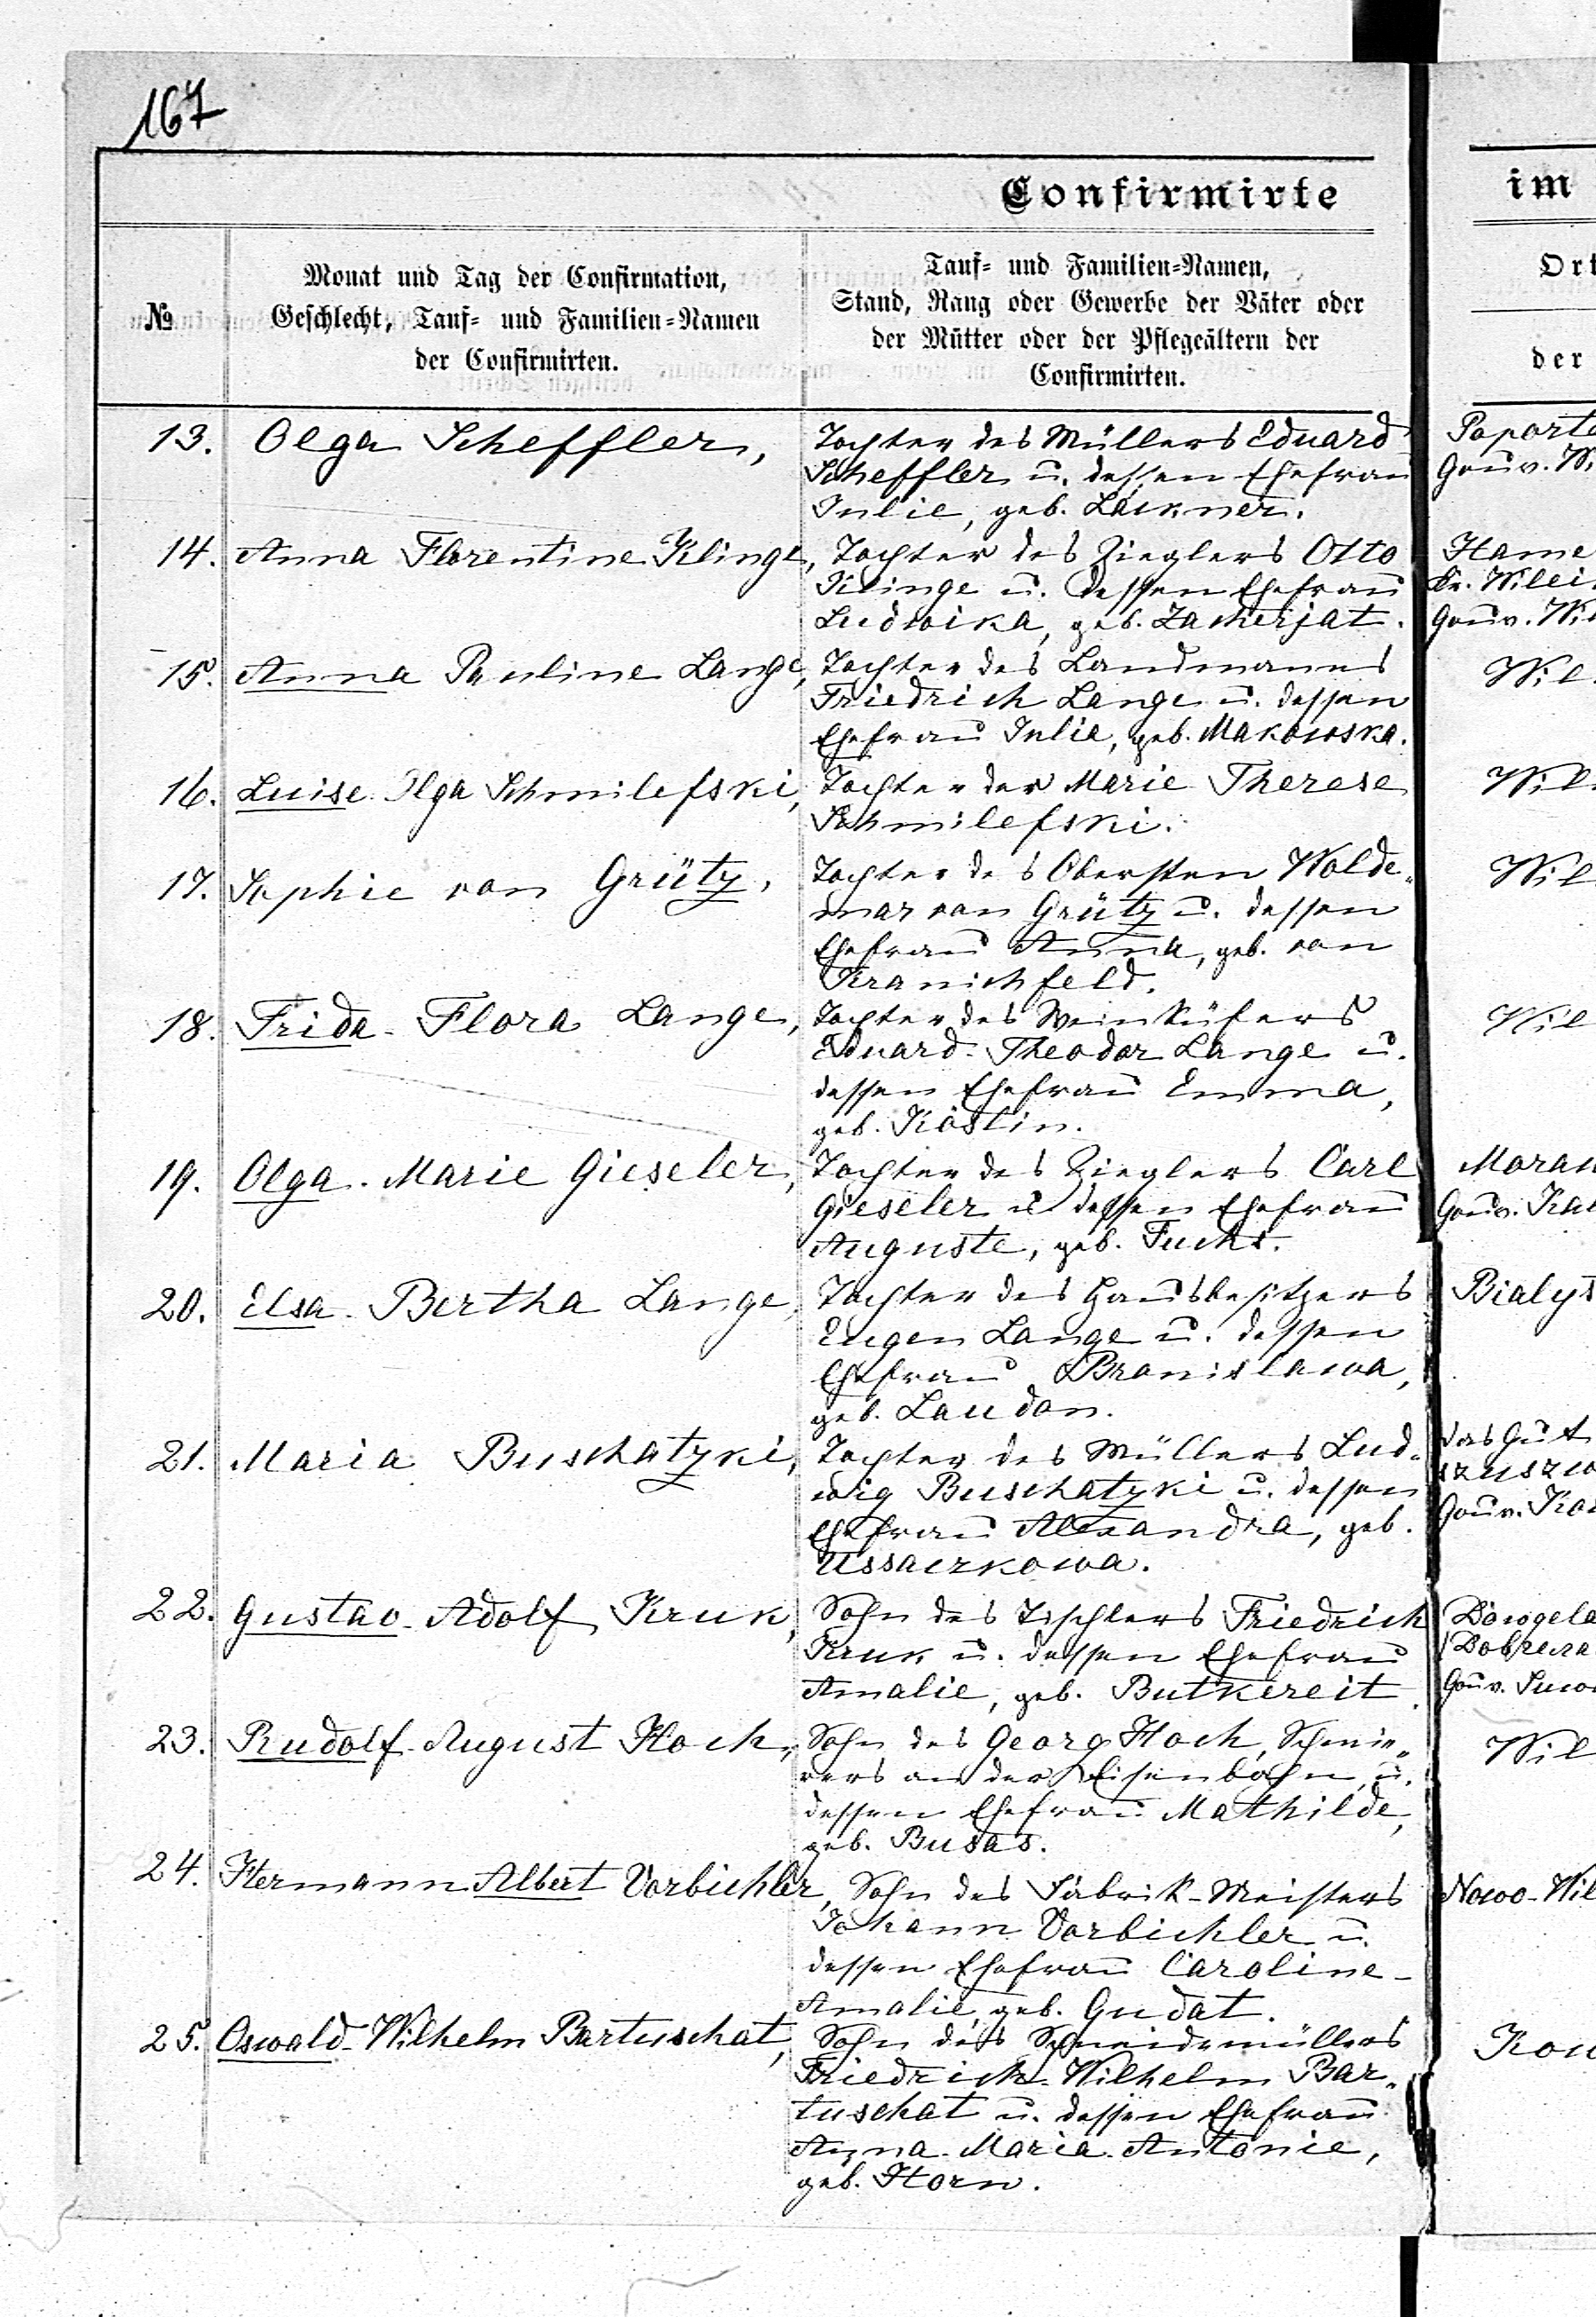 167
Confirmirte
im
№
Monat und Tag der Confirmation,
Geschlecht, Tauf- und Familien-Namen
der Confirmirten.
Tauf- und Familien-Namen,
Stand, Rang oder Gewerbe der Väter oder
der Mütter oder der Pflegeältern der
Confirmirten.
Ort
der
13. Olga Scheffler,
Tochter des Müllers Eduard
Scheffler u. dessen Ehefrau
Julie, geb. Lackner.
Paporte
Gouv. Wi
14. Anna Florentine Klinge,
Tochter des Zieglers Otto
Klinge u. dessen Ehefrau
Ludwika, geb. Zacherjat.
Hame
Kr. Wilei
Gouv. Wil
15. Anna Pauline Lange,
Tochter des Landmanns
Friedrich Lange u. dessen
Ehefrau Julie, geb. Makowska.
Wil
16. Luise Olga Schmilefski,
Tochter der Marie Therese
Schmilefski.
Wil
17. Sophie von Grütz,
Tochter des Obersten Wolde-
mar von Grütz u. dessen
Ehefrau Anna, geb. von
Kranichfeld.
Wil
18. Frida-Flora Lange,
Tochter des Weinküfers
Eduard-Theodor Lange u.
dessen Ehefrau Emma,
geb. Köstin.
Wil
19. Olga-Marie Gieseler,
Tochter des Zieglers Carl
Gieseler u. dessen Ehefrau
Auguste, geb. Fuchs.
Moran
Gouv. Kal
20. Elsa-Bertha Lange,
Tochter des Hausbesitzers
Eugen Lange u. dessen
Ehefrau Bronislawa,
geb. Laudon.
Bialys
21. Maria Buschatzki,
Tochter des Müllers Lud-
wig Buschatzki u. dessen
Ehefrau Alexandra, geb.
Ussaczkowa.
das Gut
szuszw
Gouv. Kow
22. Gustav-Adolf Kruk,
Sohn des Tischlers Friedrich
Kruk u. dessen Ehefrau
Amalie, geb. Butkereit.
Dowgela
Gouv. Suw
23. Rudolf-August Hoch,
Sohn des Georg Hoch, Schmie-
rers an der Eisenbahn, u.
dessen Ehefrau Mathilde,
geb. Busas.
Wil
24. Hermann Albert Vorbichler,
Sohn des Fabrik-Meisters
Johann Vorbichler u.
dessen Ehefrau Caroline-
Amalie, geb. Gudat.
Nowo-Wil
25. Oswald-Wilhelm Bartuschat,
Sohn des Schneidemüllers
Friedrich-Wilhelm Bar-
tuschat u. dessen Ehefrau
Anna-Maria-Antonie,
geb. Horn.
Kow